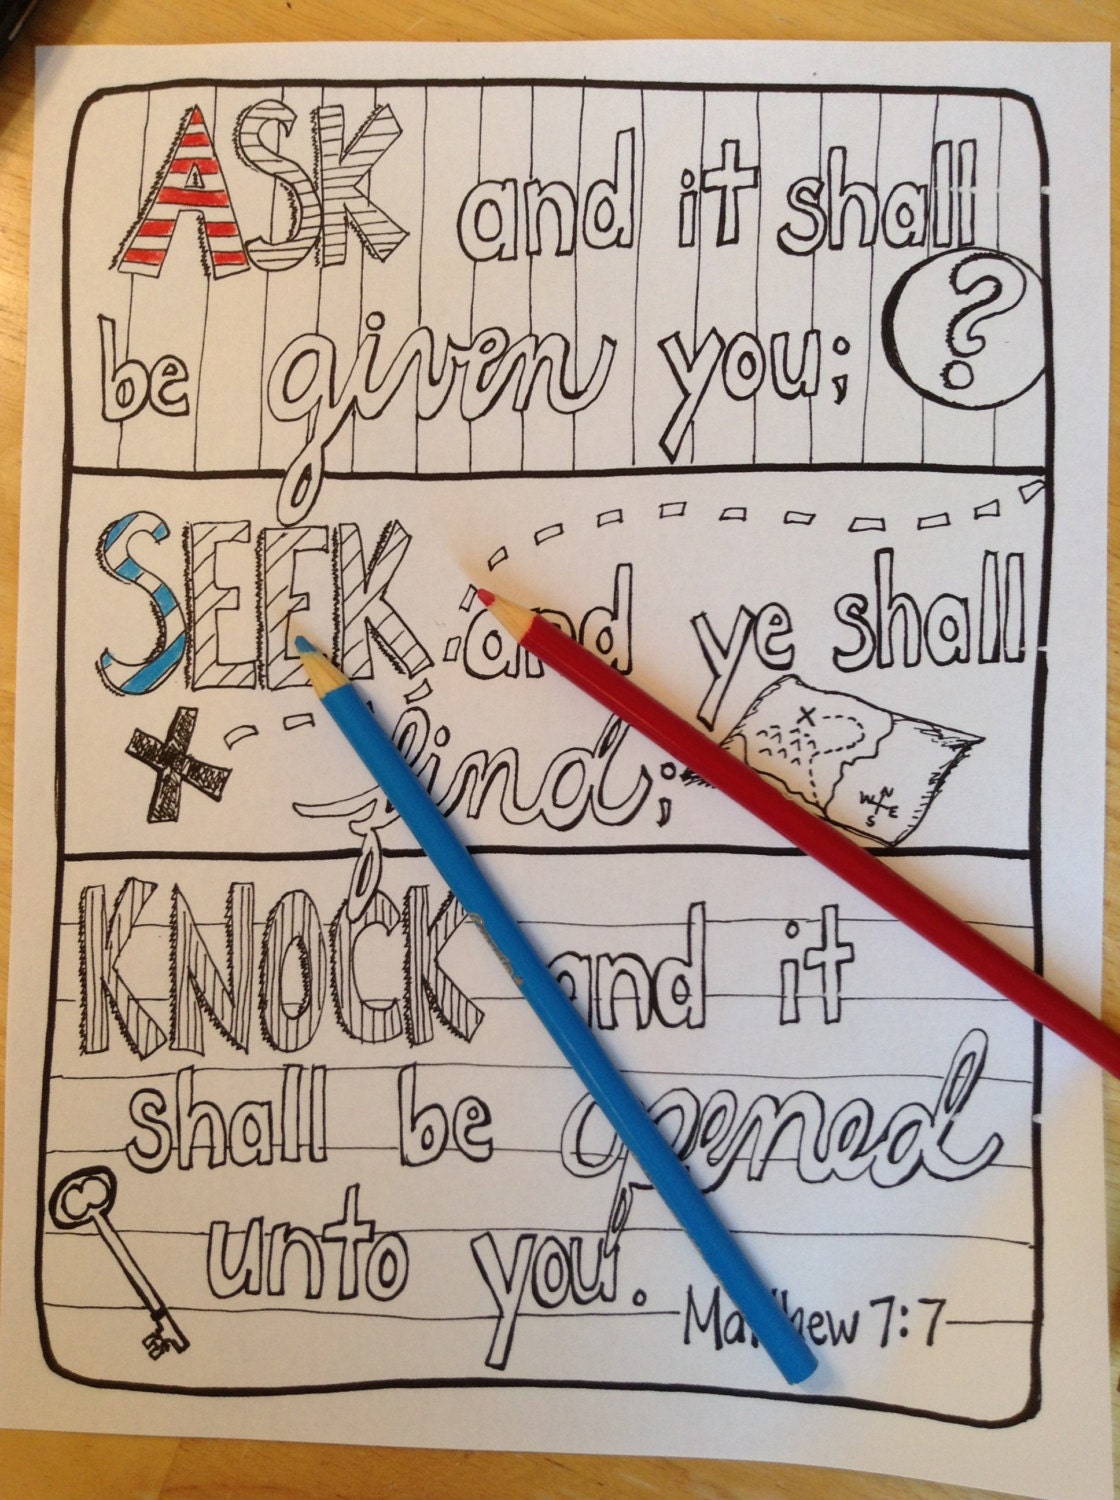 ASK and it shall
be given you; ?
SEEK and ye shall
find;
X N
W E
S
KNOCK and it
shall be opened
unto you.
Matthew 7:7